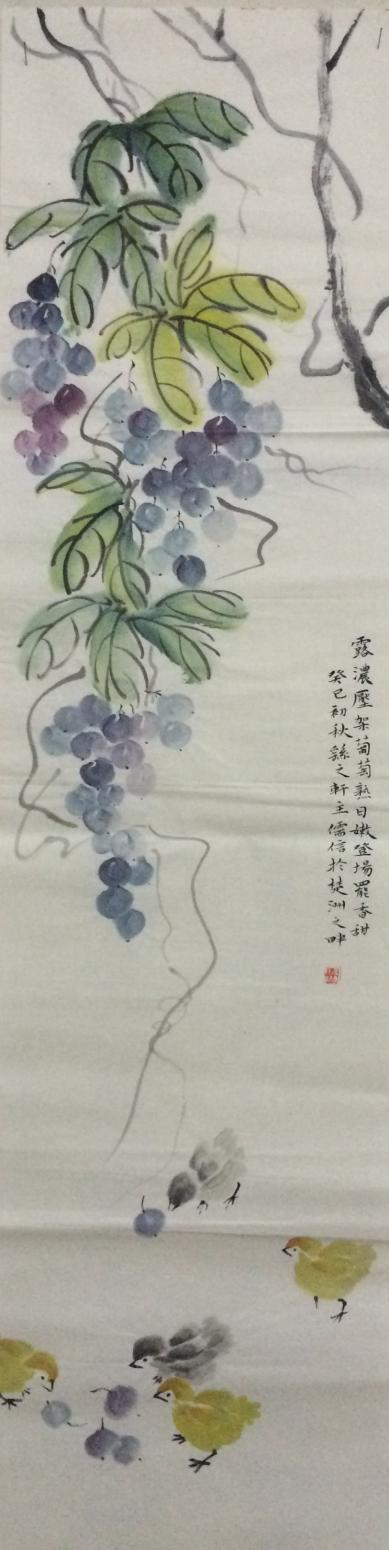 露濃壓架葡萄熟日嫩登場罷香甜
癸巳初秋繇之軒主儒信於楚洲之畔